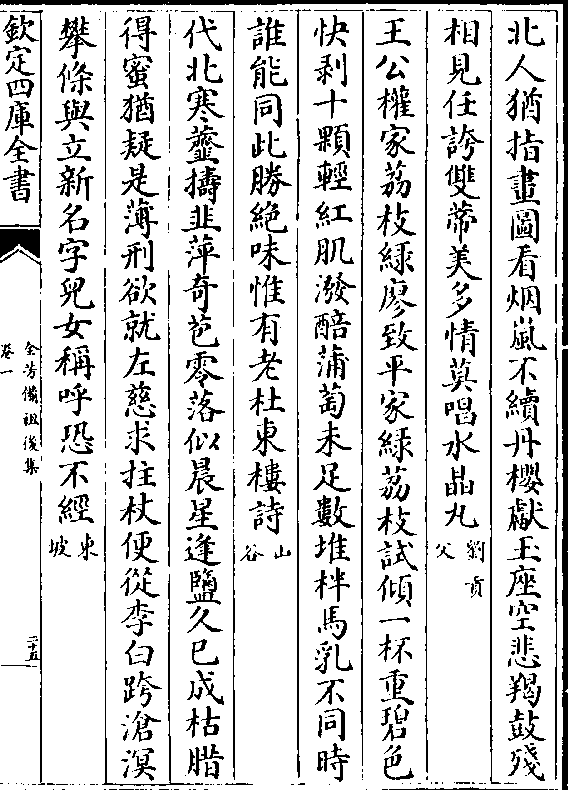 北人猶指畫圖看烟嵐不續丹櫻獻玉座空悲羯鼓殘
相見任誇雙蒂美多情莫唱水晶丸劉貢父
王公權家荔枝綠廖致平家綠荔枝試傾一杯重碧色
快剥十顆輕紅肌潑醅蒲萄未足數堆柈馬乳不同時
誰能同此勝絶味惟有老杜東樓詩山谷
代北寒虀擣韭萍奇苞零落似晨星逢鹽久已成枯腊
得蜜猶疑是薄刑欲就左慈求拄杖便從李白跨滄溟
攀條與立新名字兒女稱呼恐不經東坡
欽定四庫全書
全芳備祖後集
卷一
二十五